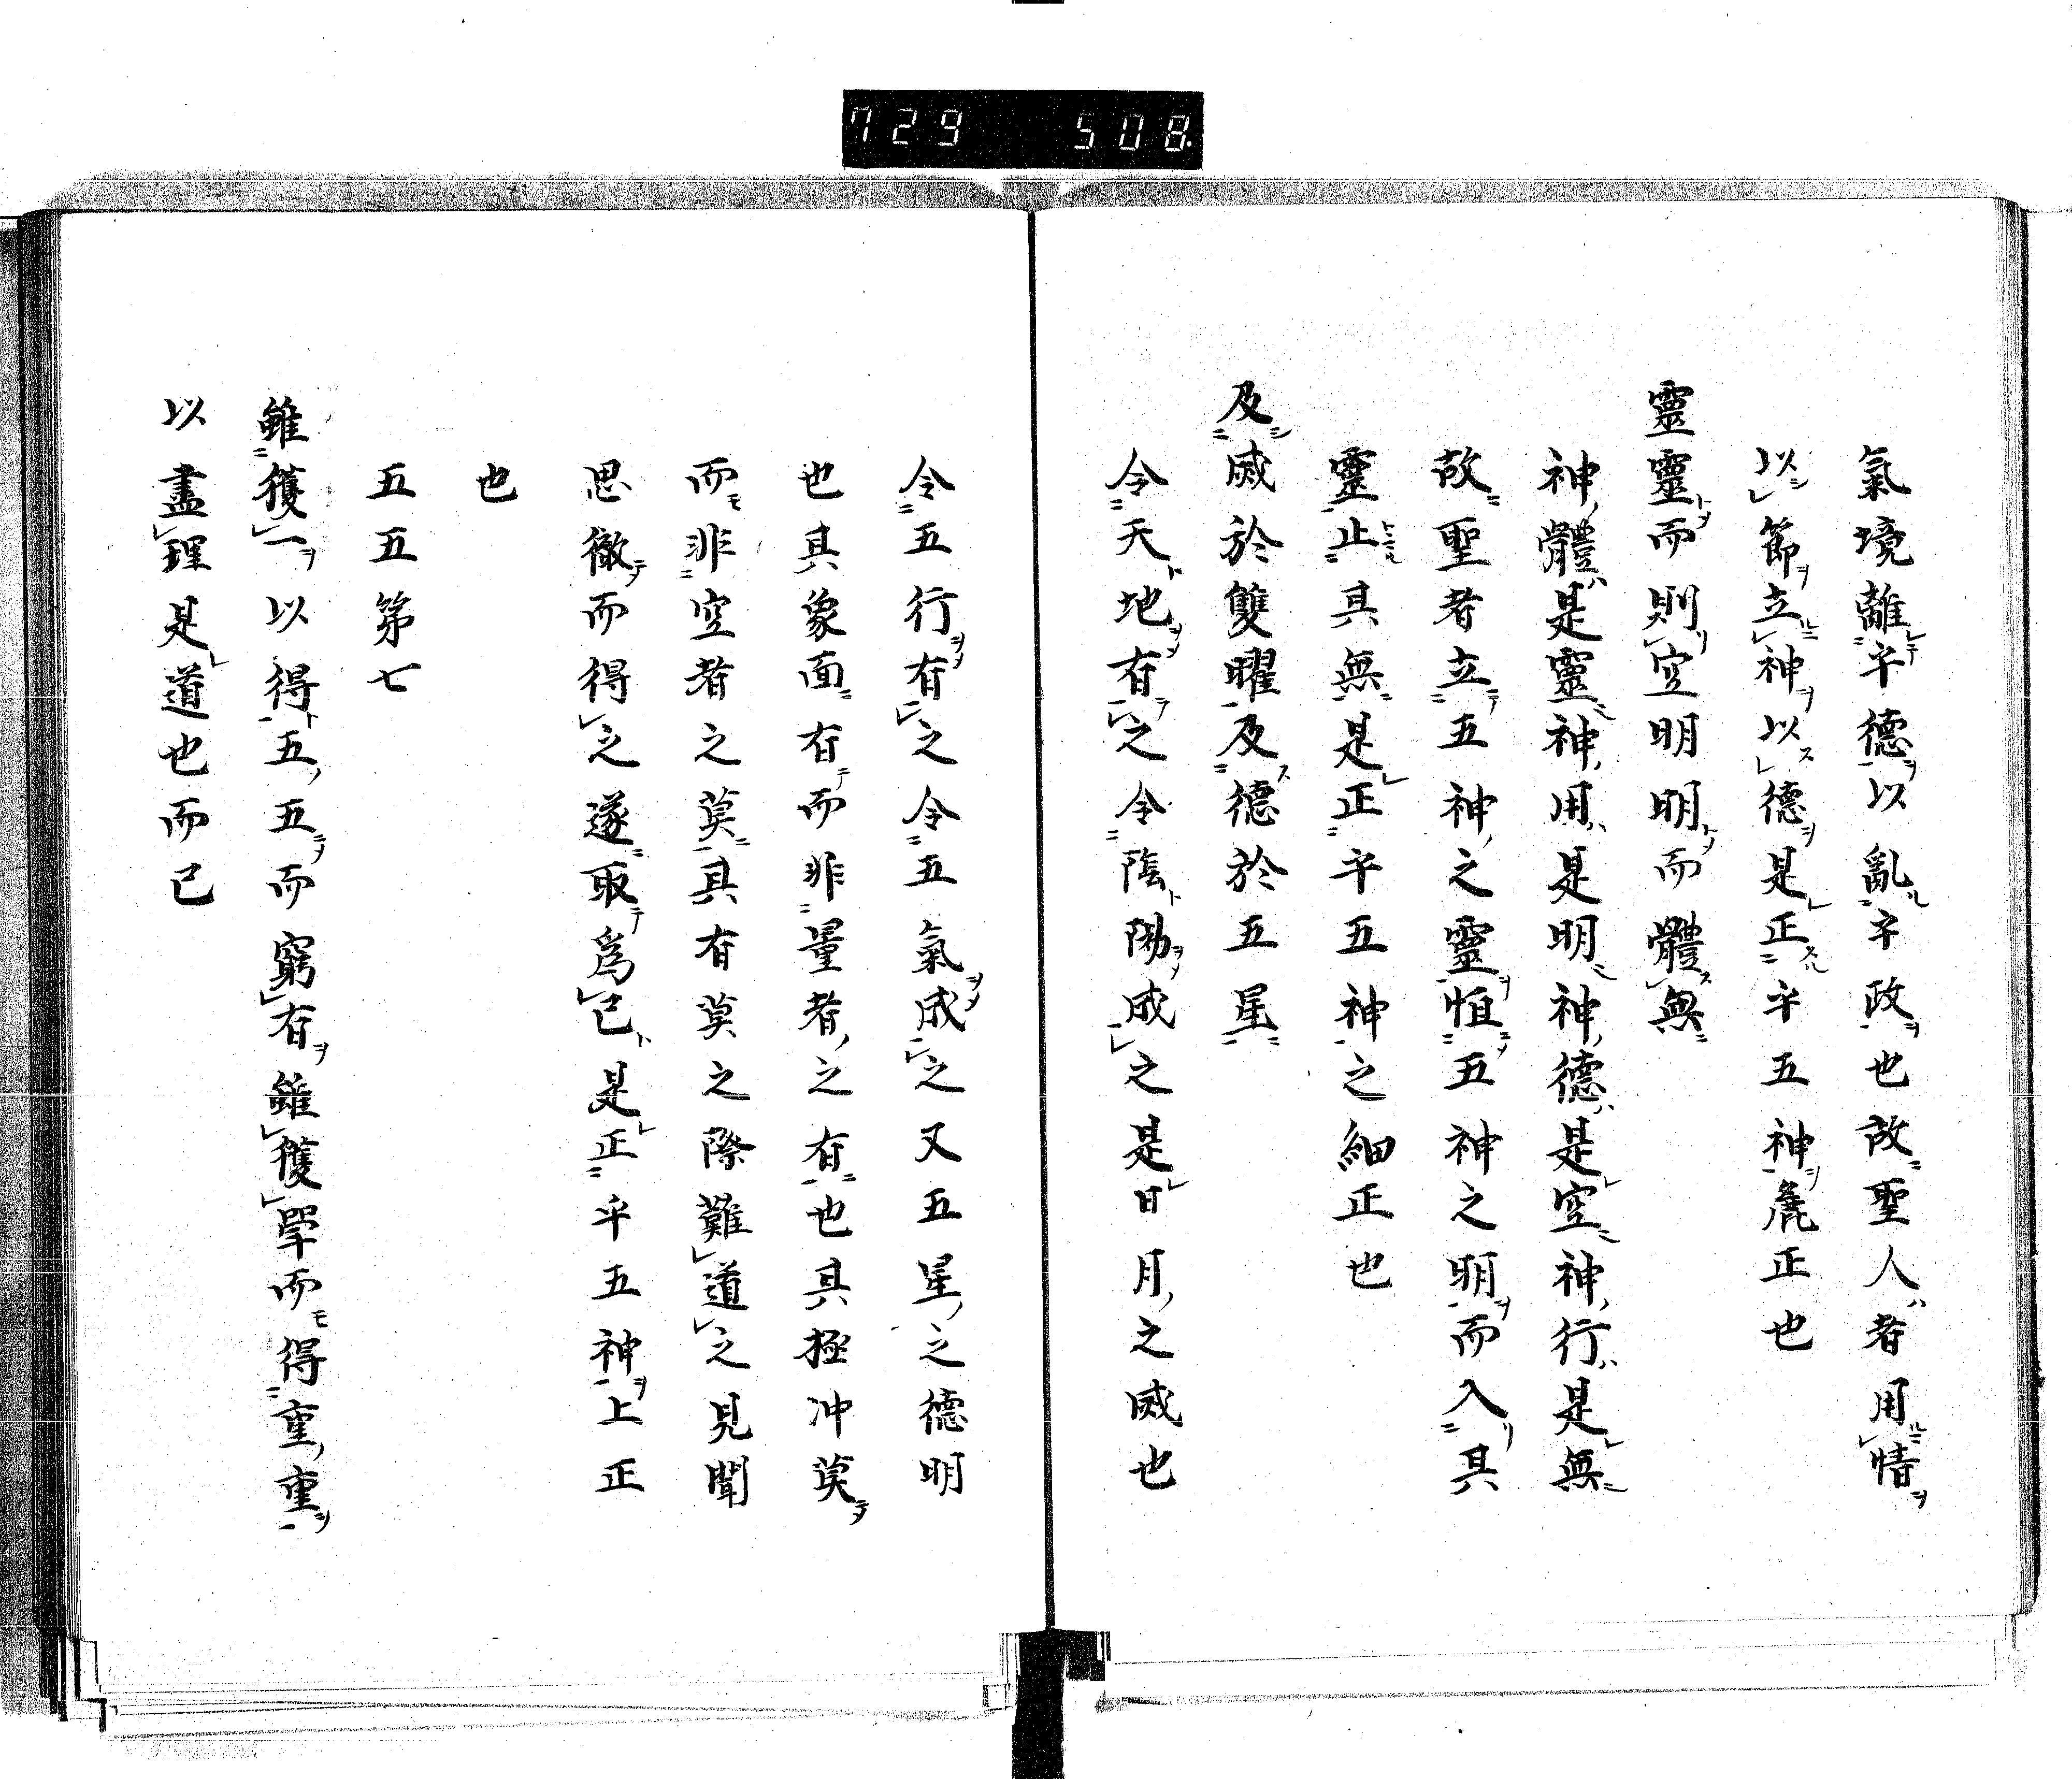 729 508
氣境離乎德以亂乎政也故聖人者用情
以節立神以德是正乎五神麁正也
靈靈而則空明明而體無
神體是靈神用是明神德是空神行是無
故聖者立五神之靈恒五神之明而入其
靈止其無是正乎五神之細正也
及威於雙曜及德於五星
令天地有之令陰陽成之是日月之威也
令五行有之令五氣成之又五星之德明
也其象面有而非量者之有也其極冲莫
而非空者之莫其有莫之際難道之見聞
思徹而得之遂取爲己是正乎五神上正
也
五五第七
雖獲一以得五五而窮有雖獲學而得重重
以盡理是道也而已